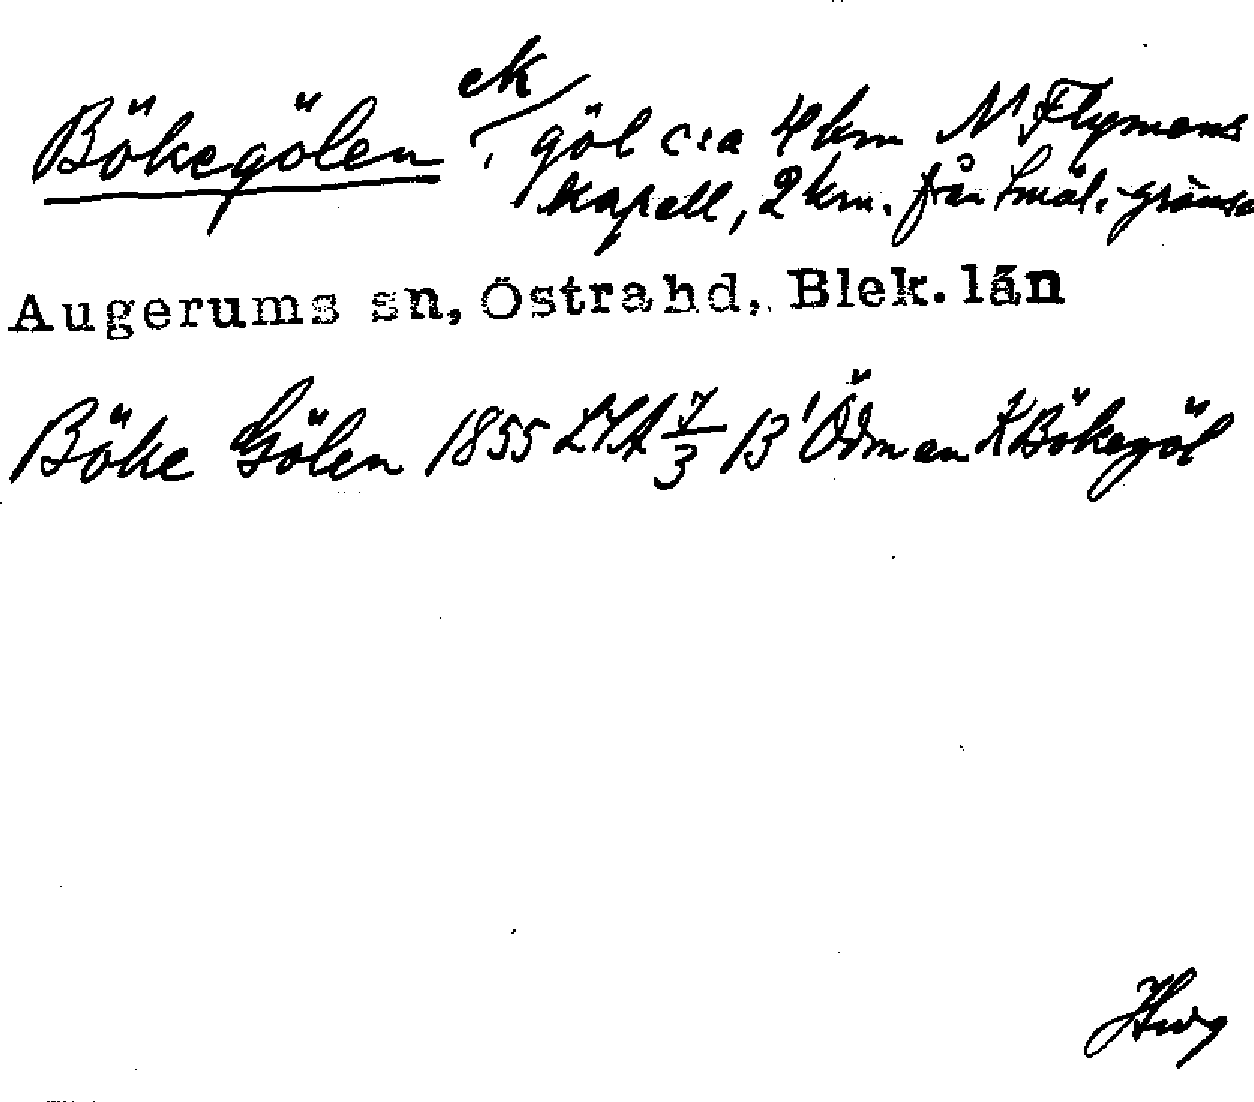 Bökegölen ek, göl c:a 4 km N Flymens
kapell, 2 km. från Smål. gräns
Augerums sn, Östra hd, Blek. län
Böke Gölen 1855 LSA 7/3 B' Ödman K Bökegöl